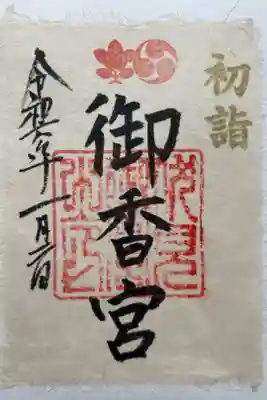 初詣
御香宮
令和六年一月二日